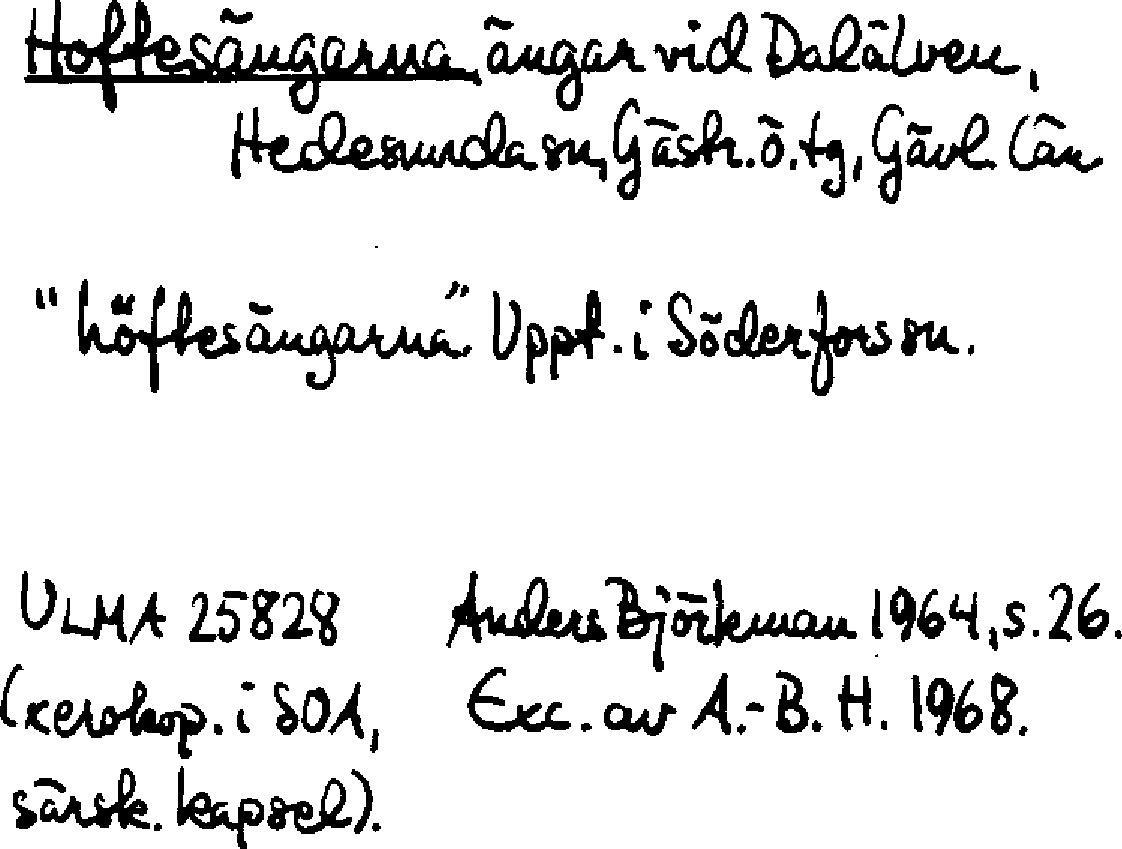 Hoftesängarna, ängar vid Dalälven,
Hedesunda sn, Gästr. ö. tg, Gävl. län
"höftesängarna". Uppt. i Söderfors sn.
ULMA 25828 Anders Björkman 1964, s. 26.
(xerokop. i SOA, Exc. av A.-B. H. 1968.
särsk. kapsel).